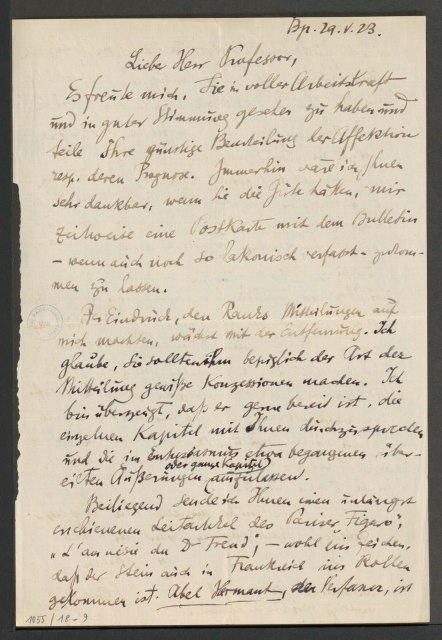 Bp. 29. V. 23.
Lieber Herr Professor,
Es freute mich, Sie in voller Arbeitskraft
und in guter Stimmung gesehen zu haben und
teile Ihre günstige Beurteilung der Affektion
resp. deren Prognose. Immerhin wäre ich Ihnen
sehr dankbar, wenn Sie die Güte hätten, mir
zeitweise eine Postkarte mit dem Bulletin
- wenn auch noch so lakonisch verfasst - zukom-
men zu lassen.
Der Eindruck, den Ranks Mitteilungen auf
mich machten, wächst mit der Entfernung. Ich
glaube, Sie sollten ihm bezüglich der Art der
Mitteilung gewisse Konzessionen machen. Ich
bin überzeugt, daß er gerne bereit ist, die
einzelnen Kapitel mit Ihnen durchzusprechen
und die im Enthusiasmus etwa begangenen über-
eilten Äußerungen oder ganze Kapitel auszulassen.
Beiliegend sende ich Ihnen einen unlängst
erschienenen Leitartikel des Pariser "Figaro",
"L'am du Dr Freud", - wohl ein Zeichen,
daß der Stein auch in Frankreich ins Rollen
gekommen ist. Abel Hermant, der Verfasser, ist
1055/18-9